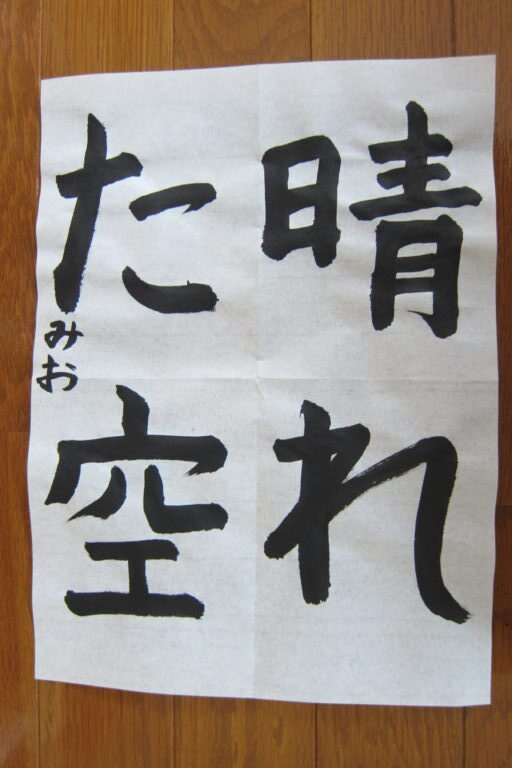 晴れ
た空
みお